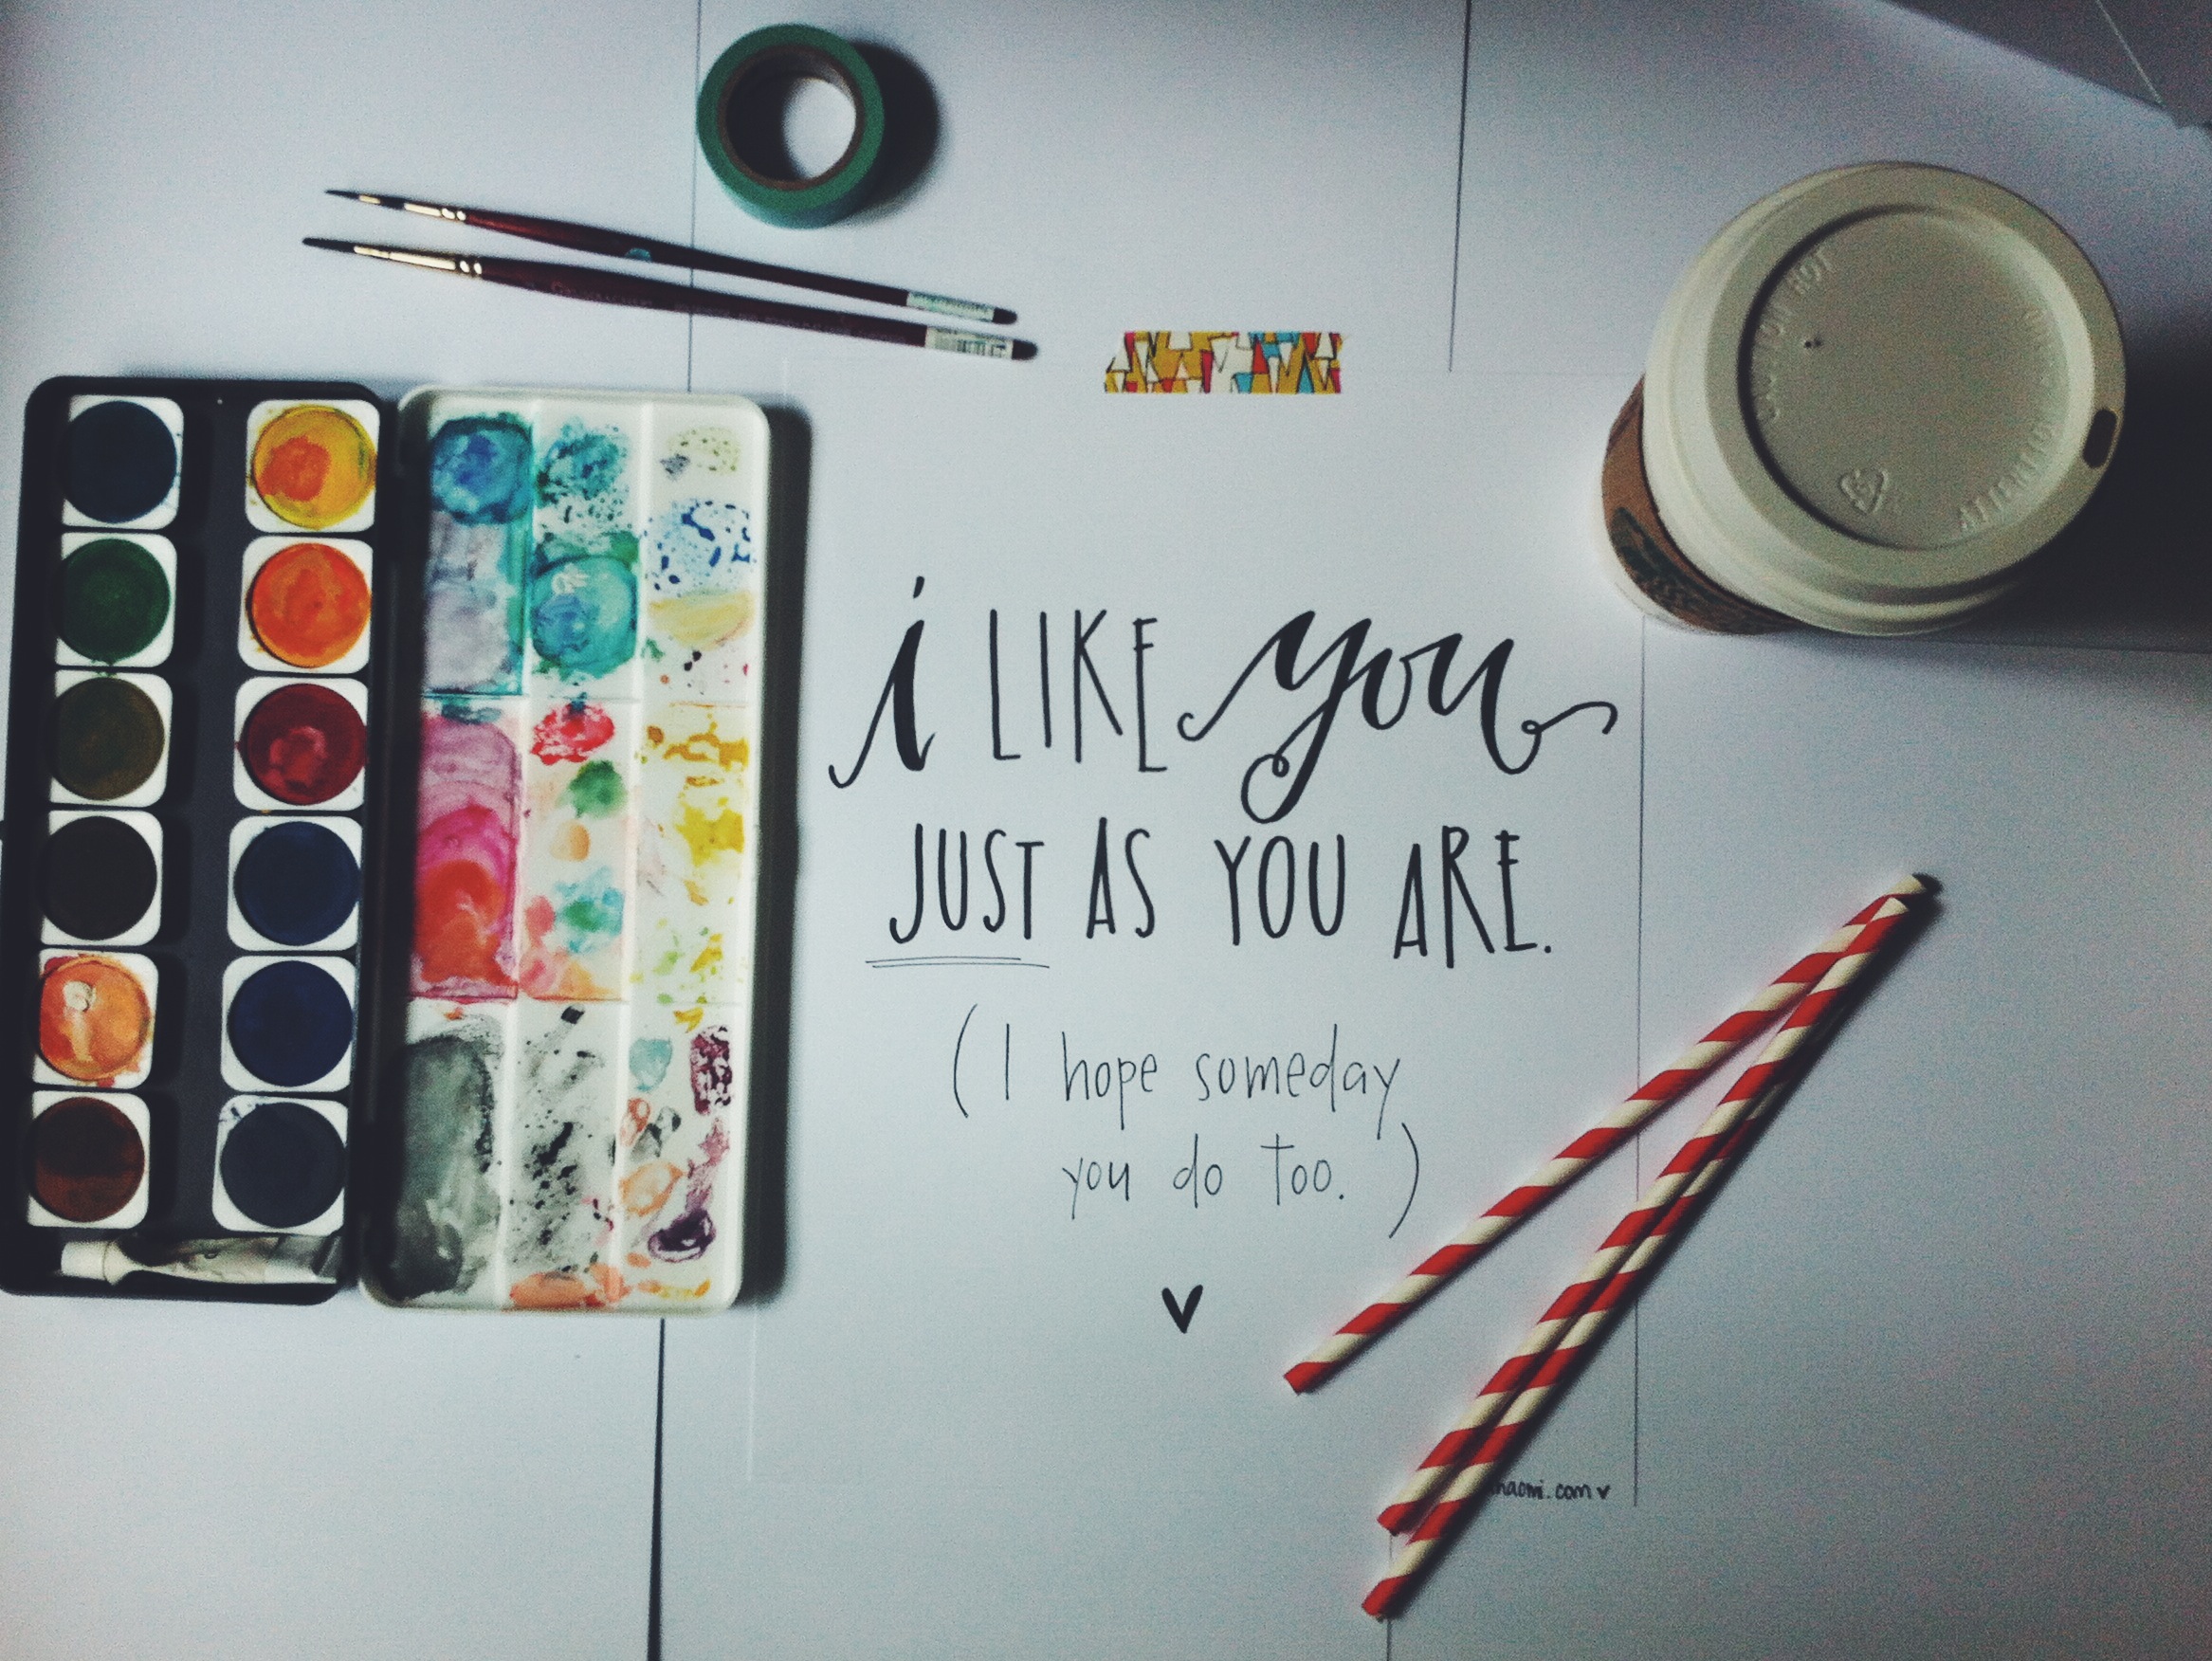 i LIKE you
JUST AS YOU ARE.
(I hope someday
you do too.)
naomi.com